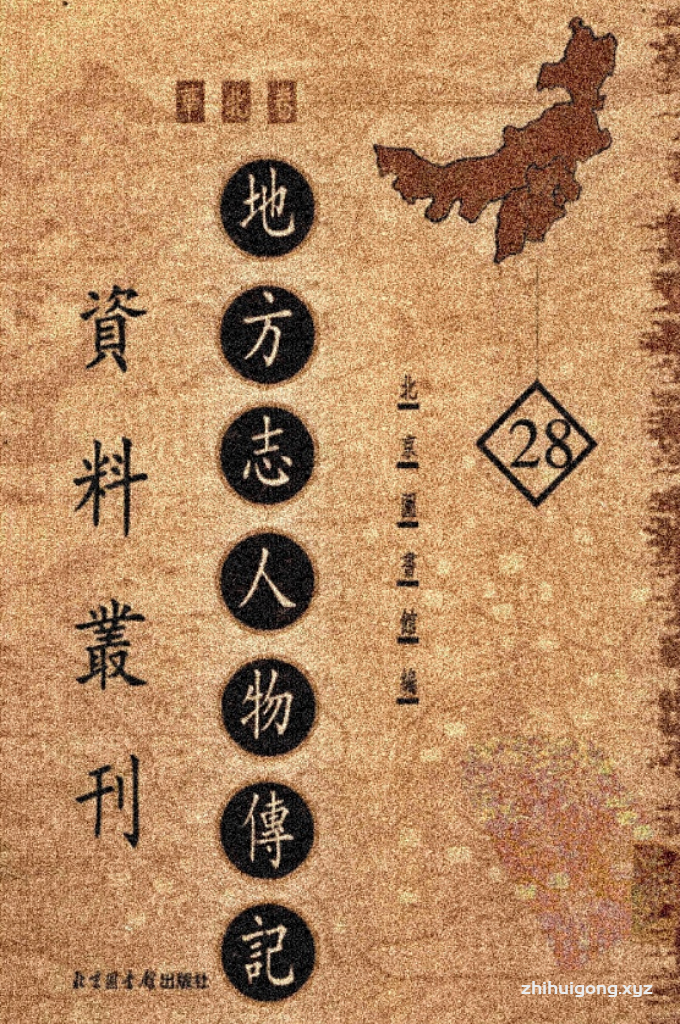 華北卷
地方志人物傳記
資料叢刊
北京圖書館編
28
北京图书馆出版社
zhihuigong.xyz